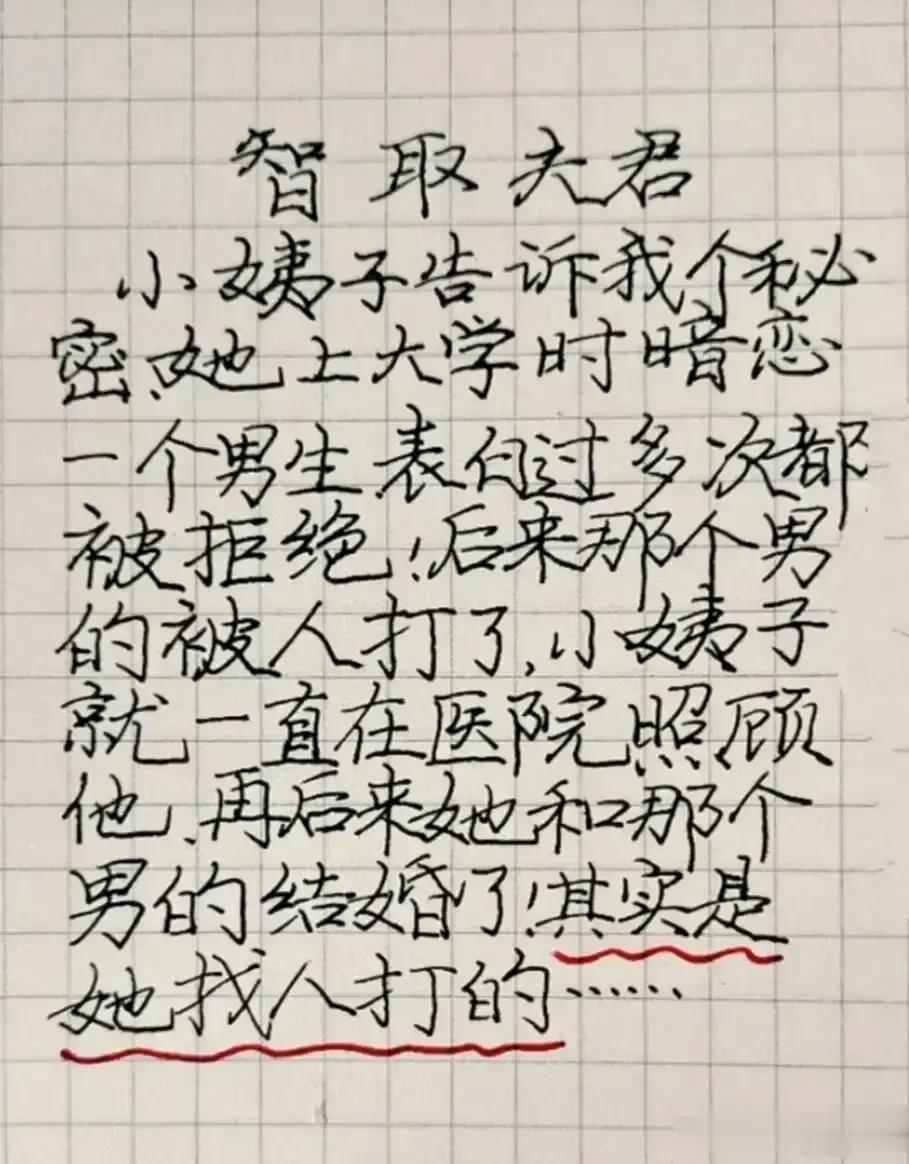 智取夫君
小姨子告诉我个秘
密,她上大学时暗恋
一个男生,表白过多次都
被拒绝!后来那个男
的被人打了,小姨子
就一直在医院照顾
他,再后来她和那个
男的结婚了!其实是
她找人打的……